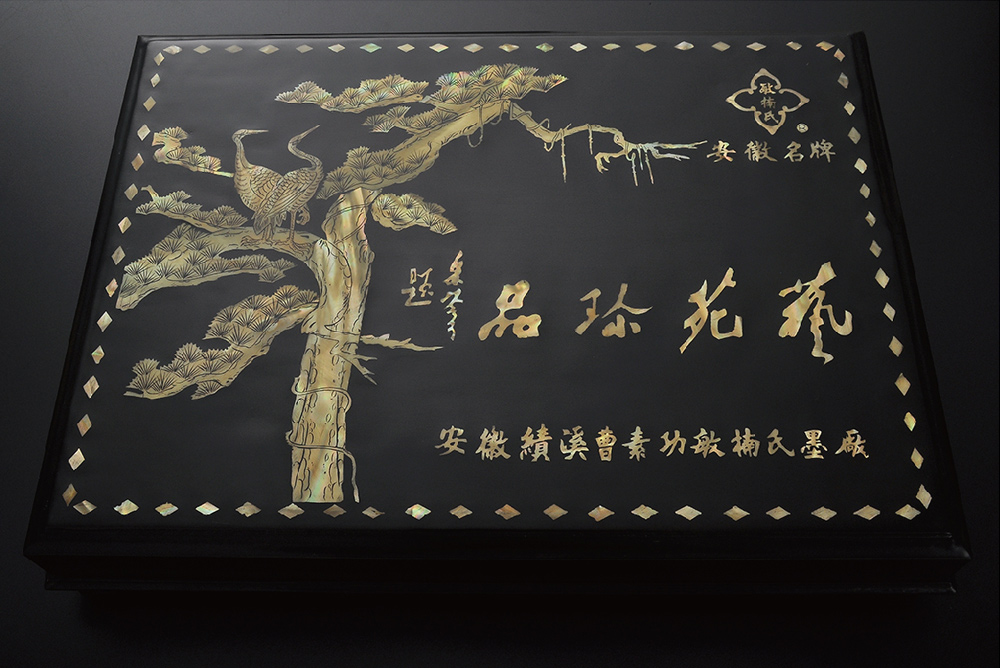 敏楠氏
安徽名牌
藝苑珍品
題
安徽績溪曹素功敏楠氏墨廠